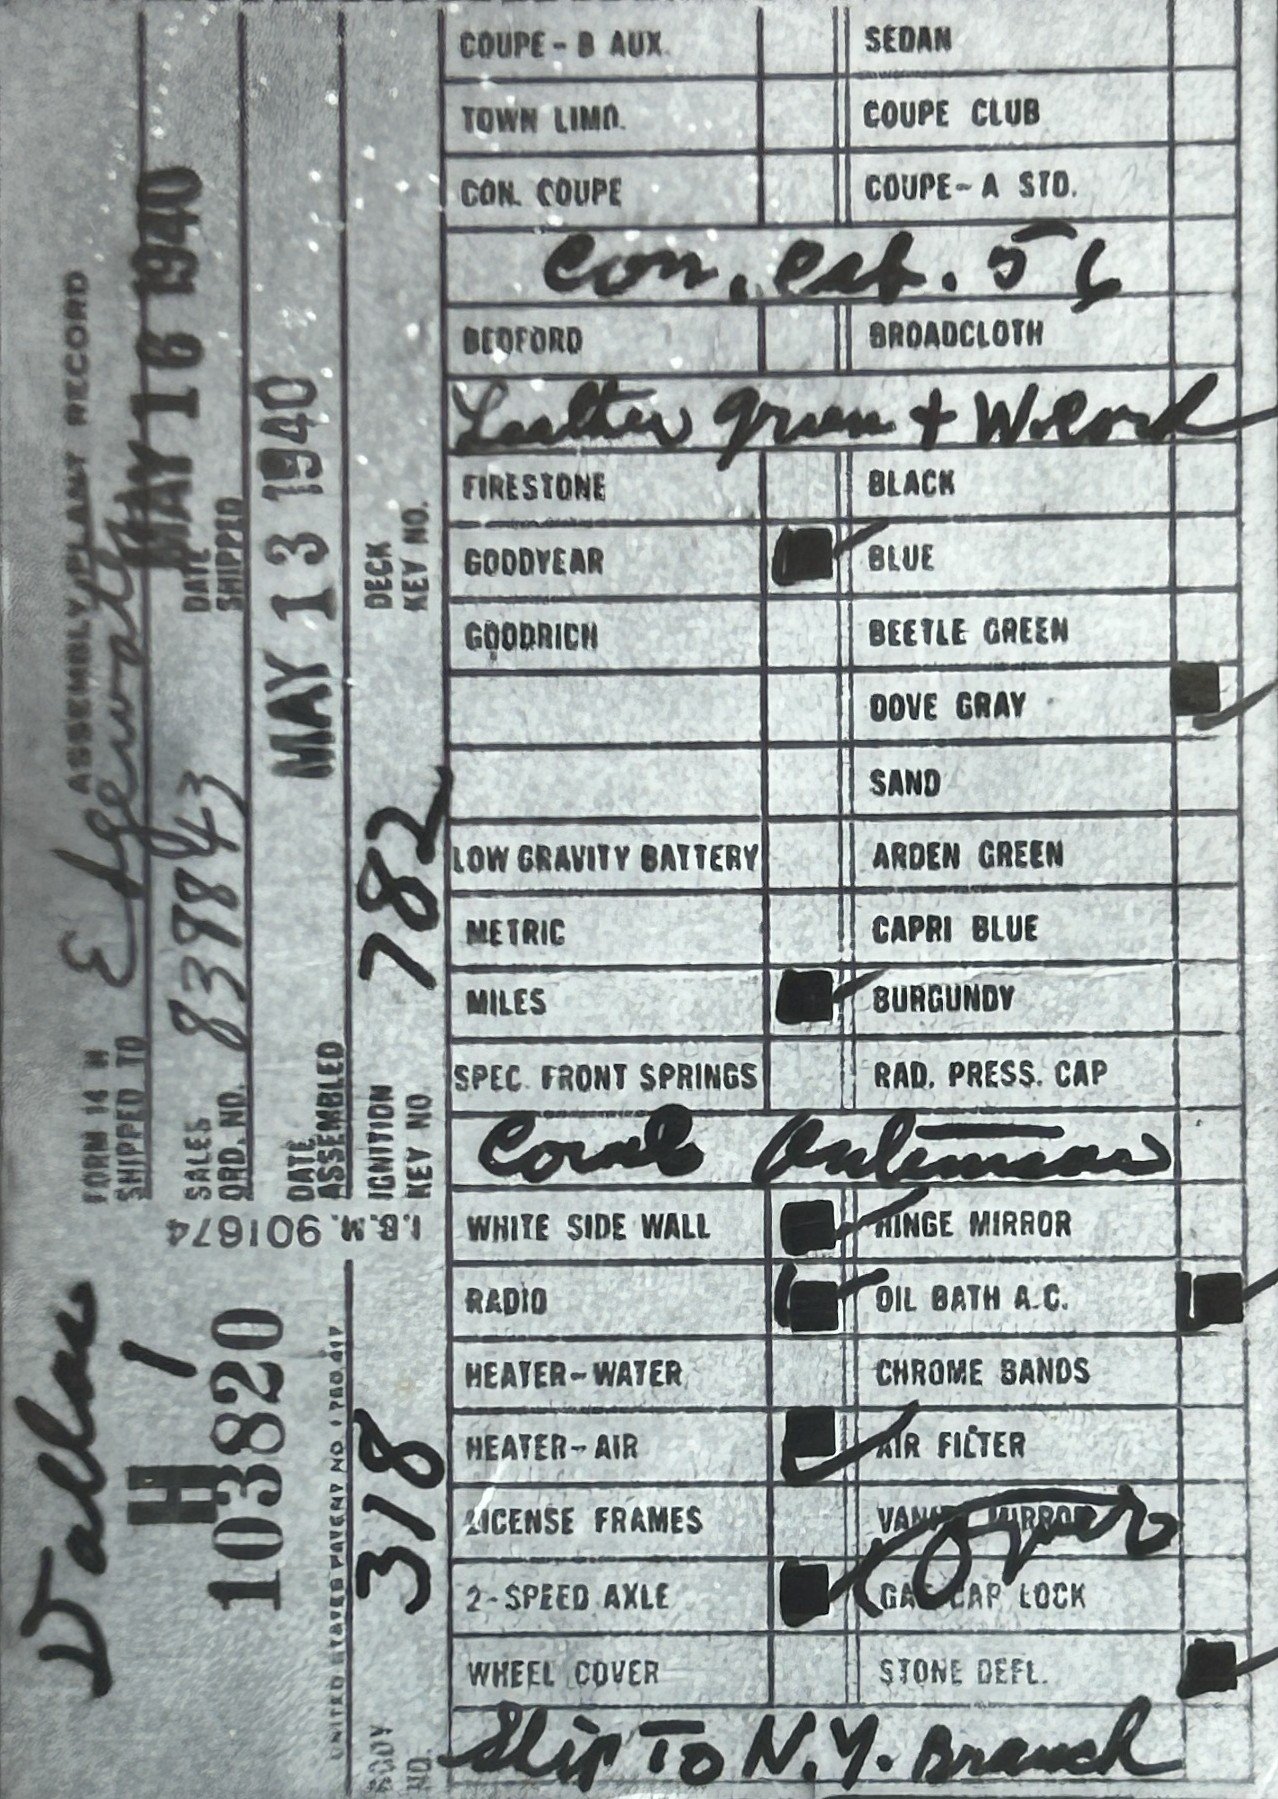 COUPE - B AUX. SEDAN
TOWN LIMO. COUPE CLUB
CON. COUPE COUPE - A STD.
Con. Cab. 56
BEDFORD BROADCLOTH
Leather green + W.Cord
FIRESTONE BLACK
GOODYEAR BLUE
GOODRICH BEETLE GREEN
DOVE GRAY
SAND
LOW GRAVITY BATTERY ARDEN GREEN
METRIC CAPRI BLUE
MILES BURGUNDY
SPEC. FRONT SPRINGS RAD. PRESS. CAP
Cowl Antennae
WHITE SIDE WALL HINGE MIRROR
RADIO OIL BATH A.C.
HEATER - WATER CHROME BANDS
HEATER - AIR AIR FILTER
LICENSE FRAMES VANITY MIRROR
Over
2-SPEED AXLE GAS CAP LOCK
WHEEL COVER STONE DEFL.
Ship To N.Y. Branch
Dallas
H 1
H
103820
UNITED STATES PATENT NO.
FORM 14 M ASSEMBLY PLANT RECORD
SHIPPED TO Edgewater
MAY 16 1940
SALES ORD. NO. 839843 DATE SHIPPED
DATE ASSEMBLED MAY 13 1940
I.B.M. 901674
BODY NO. 318 IGNITION KEY NO 782 DECK KEY NO.